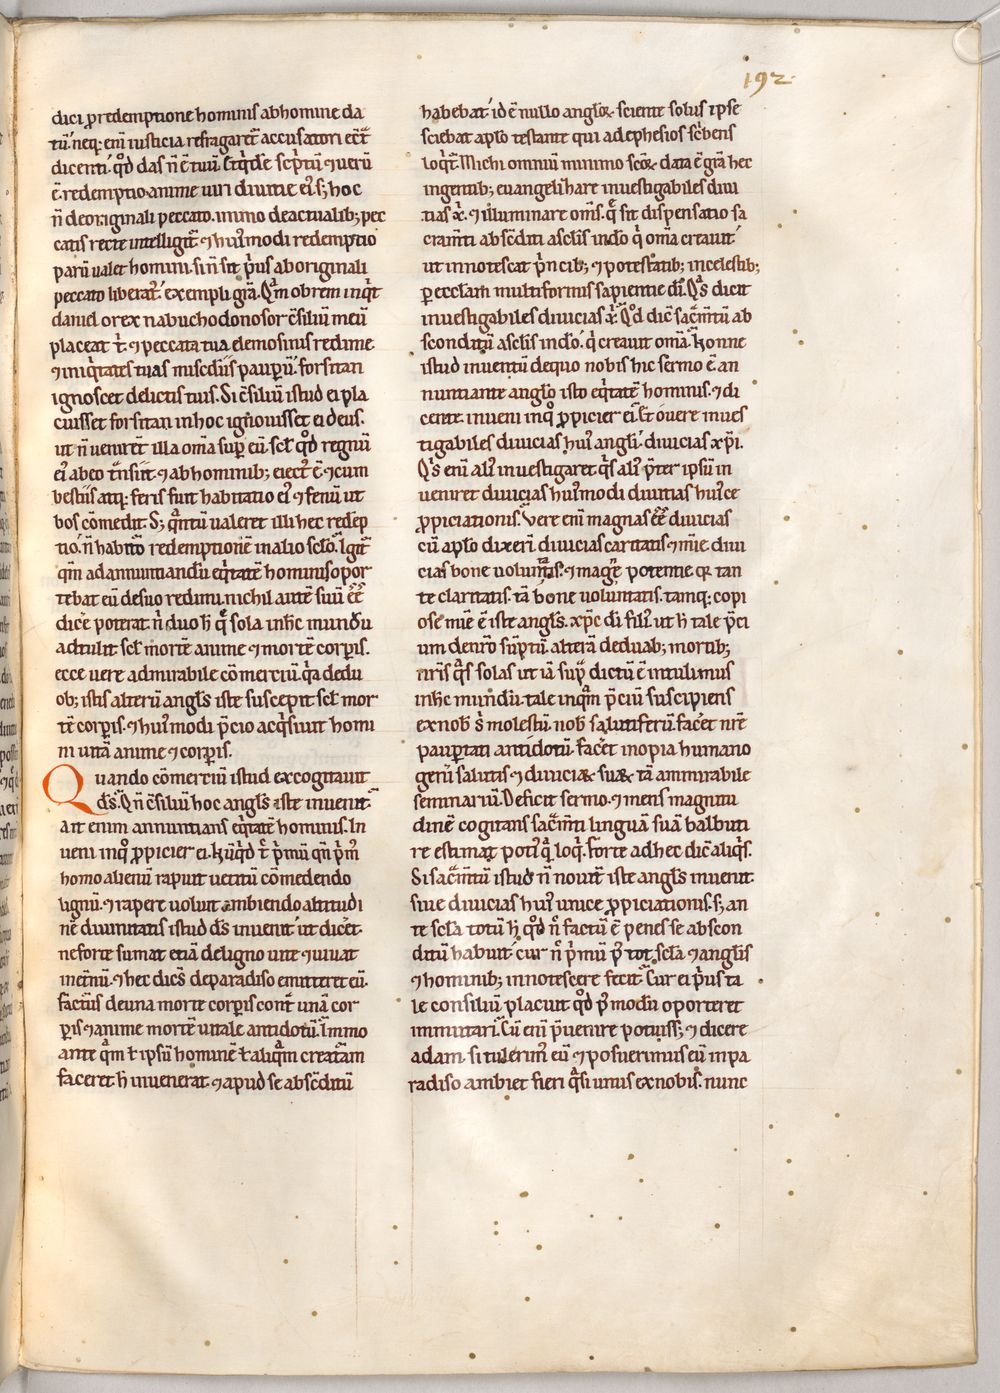 192
dici p redemptione hominis ab homine da
tū. neq; enī iusticia refragaret̄ accusatori eēt
dicenti. qd̓ das n̄ ē tuū. scͥptū ⁊ uerū
ē. redemptio anime uiri diuitie eiꝰ. s; hoc
n̄ de originali peccato. immo de actualib; pec
catis recte intelligit̄ ⁊ huiꝰmodi redemptio
parū ualet homini. si n̄ sit pͥus ab originali
peccato liberatꝰ. exempli gͣa. Qͣmobrem inqͥt
daniel o rex nabuchodonosor c̄siliū meū
placeat t̓. ⁊ peccata tua elemosinis redime
⁊ iniqͥtates tuas misc̄diis pauꝑū. forsitan
ignoscet delictis tuis. Si c̄siliū istud ei pla
cuisset forsitan in hoc ignouisset ei deus.
ut n̄ uenirēt illa om̄a suꝑ eū. scl̓ qd̓ regnū
eiꝰ ab eo tͣnsiit ⁊ ab hominib; eiectꝰ ē ⁊ cum
bestiis atq; feris fuit habitatio eiꝰ ⁊ fenū ut
bos comedit. S; qͣntū ualeret illi hec redēp
tio. n̄ habita redemptionē in alio sclo. Igit̄
qm̄ ad annuntiandū eqͥtatē hominis opor
tebat eū de suo redimi. nichil autē suū eēt
dicͤe poterat. n̄ duo h̄ qͤ sola in hc̄ mundū
adtulit scl̓ mortē anime ⁊ mortē corꝑis.
ecce uere admirabile cōmerciū. qͣ a dedu
ob; istis alterū angl̓s iste suscepit scl̓ mor
tē corꝑis. ⁊ huiꝰmodi p̄cio acqͥsiuit homi
ni uitā anime ⁊ corꝑis.
Quando cōmerciū istud excogitauit
dſ̄. Qn̄ c̄siliū hoc angl̓s iste inuenit
ait enim annuntians eqͥtatē hominis. In
ueni in qͦ ꝓpicier ei. Nūqͥd t̄ pͥmū qn̄ pͥm̄
homo alienū rapuit uetitū comedendo
lignū. ⁊ rapere uoluit ambiendo altitudi
nē diuinitatis istud dſ̄ inuenit. ut dicͤet.
ne forte sumat etiā de ligno uite ⁊ uiuat
in et̄nū. ⁊ hec dicēs de paradiso emitteret eū.
factꝰ deuna morte corꝑis contͣ unā cor
ꝑis ⁊ anime mortē uitale antidotū. Immo
ante qͣm ł ipsū hominē ł aliqͣm creatͣam
faceret h̄ inuenerat ⁊ apud se absc̄ditū
habebat. id ē nullo angloꝝ sciente solus ipse
sciebat aplo testante qui ad ephesios scͥbens
loqͥt̄. Michi omniū minimo scōꝝ data ē gͣa hec
in gentib; euangelizare inuestigabiles diui
tias x̄. ⁊ illuminare om̄s. qͤ sit dispensatio sa
cramti absc̄diti a sclis in do qͥ om̄a creauit.
ut innotescat pͥncib; ⁊ potestatib; in celestib;
ꝑ ecclam multiformis sapientie di. Qͥs dicit
inuestigabiles diuicias x̄. Qd̓ dic̄ sacͣmtū ab
sconditū a sclis in do. qͥ creauit om̄a. Nonne
istud inuentū de quo nobis hic sermo ē an
nuntiante anglo isto eqͥtatē hominis. ⁊ di
cente. inueni in qͦ ꝓpicier ei. ē uere inues
tigabiles diuicias huiꝰ angli. diuicias xp̄i.
Qͥs enī aliꝰ inuestigaret. qͥs aliꝰ pͣter ipsū in
ueniret diuicias huiꝰmodi diuitias huiꝰce
ꝓpiciationis. Vere enī magnas eēt diuicias
cū aplo dixeri. diuicias caritatis ⁊ mīe. diui
cias bone uoluntatis. ⁊ magͤ potentie qͣ tan
te claritatis. tā bone uoluntatis. tamq; copi
ose mīe ē iste angl̓s. xp̄c di filiꝰ. ut h̄ tale p̄ci
um de nr̄o sūptū alterā de duab; mortib;
nr̄is qͣs solas ut iā supͣ dictū ē intulimus
in hc̄ mundū. tale inqͣm p̄ciū suscipiens
ex nob̄ s; molestū. nob̄ salutiferū. facͤet nr̄e
pauꝑtati antidotū. facͤet inopia humano
gen̄i salutis ⁊ diuiciaꝝ suaꝝ tā ammirabile
seminariū. Deficit sermo. ⁊ mens magnitu
dinē cogitans sacͣmti linguā suā balbuti
re estimat potiꝰ qͣ loqͥ. Forte ad hec dic̄ aliqͥs.
Si sacͣmtū istud n̄ nouit iste angl̓s inuenit
siue diuicias huiꝰ unice ꝓpiciationis. s; an
te scla totū h̄ qd̓ n̄c factū ē penes se abscon
ditū habuit. cur n̄ pͥmū p̄ tot scla ⁊ anglis
⁊ hominib; innotescere fecit. Cur ei pͥus ta
le consiliū placuit qd̓ p̄modū oporteret
immutari. Cū enī p̄uenire potuiss; ⁊ dicere
adam. si tulerimꝰ eū ⁊ posuerimus eū in pa
radiso ambiet fieri qͣsi unus ex nobis. nunc